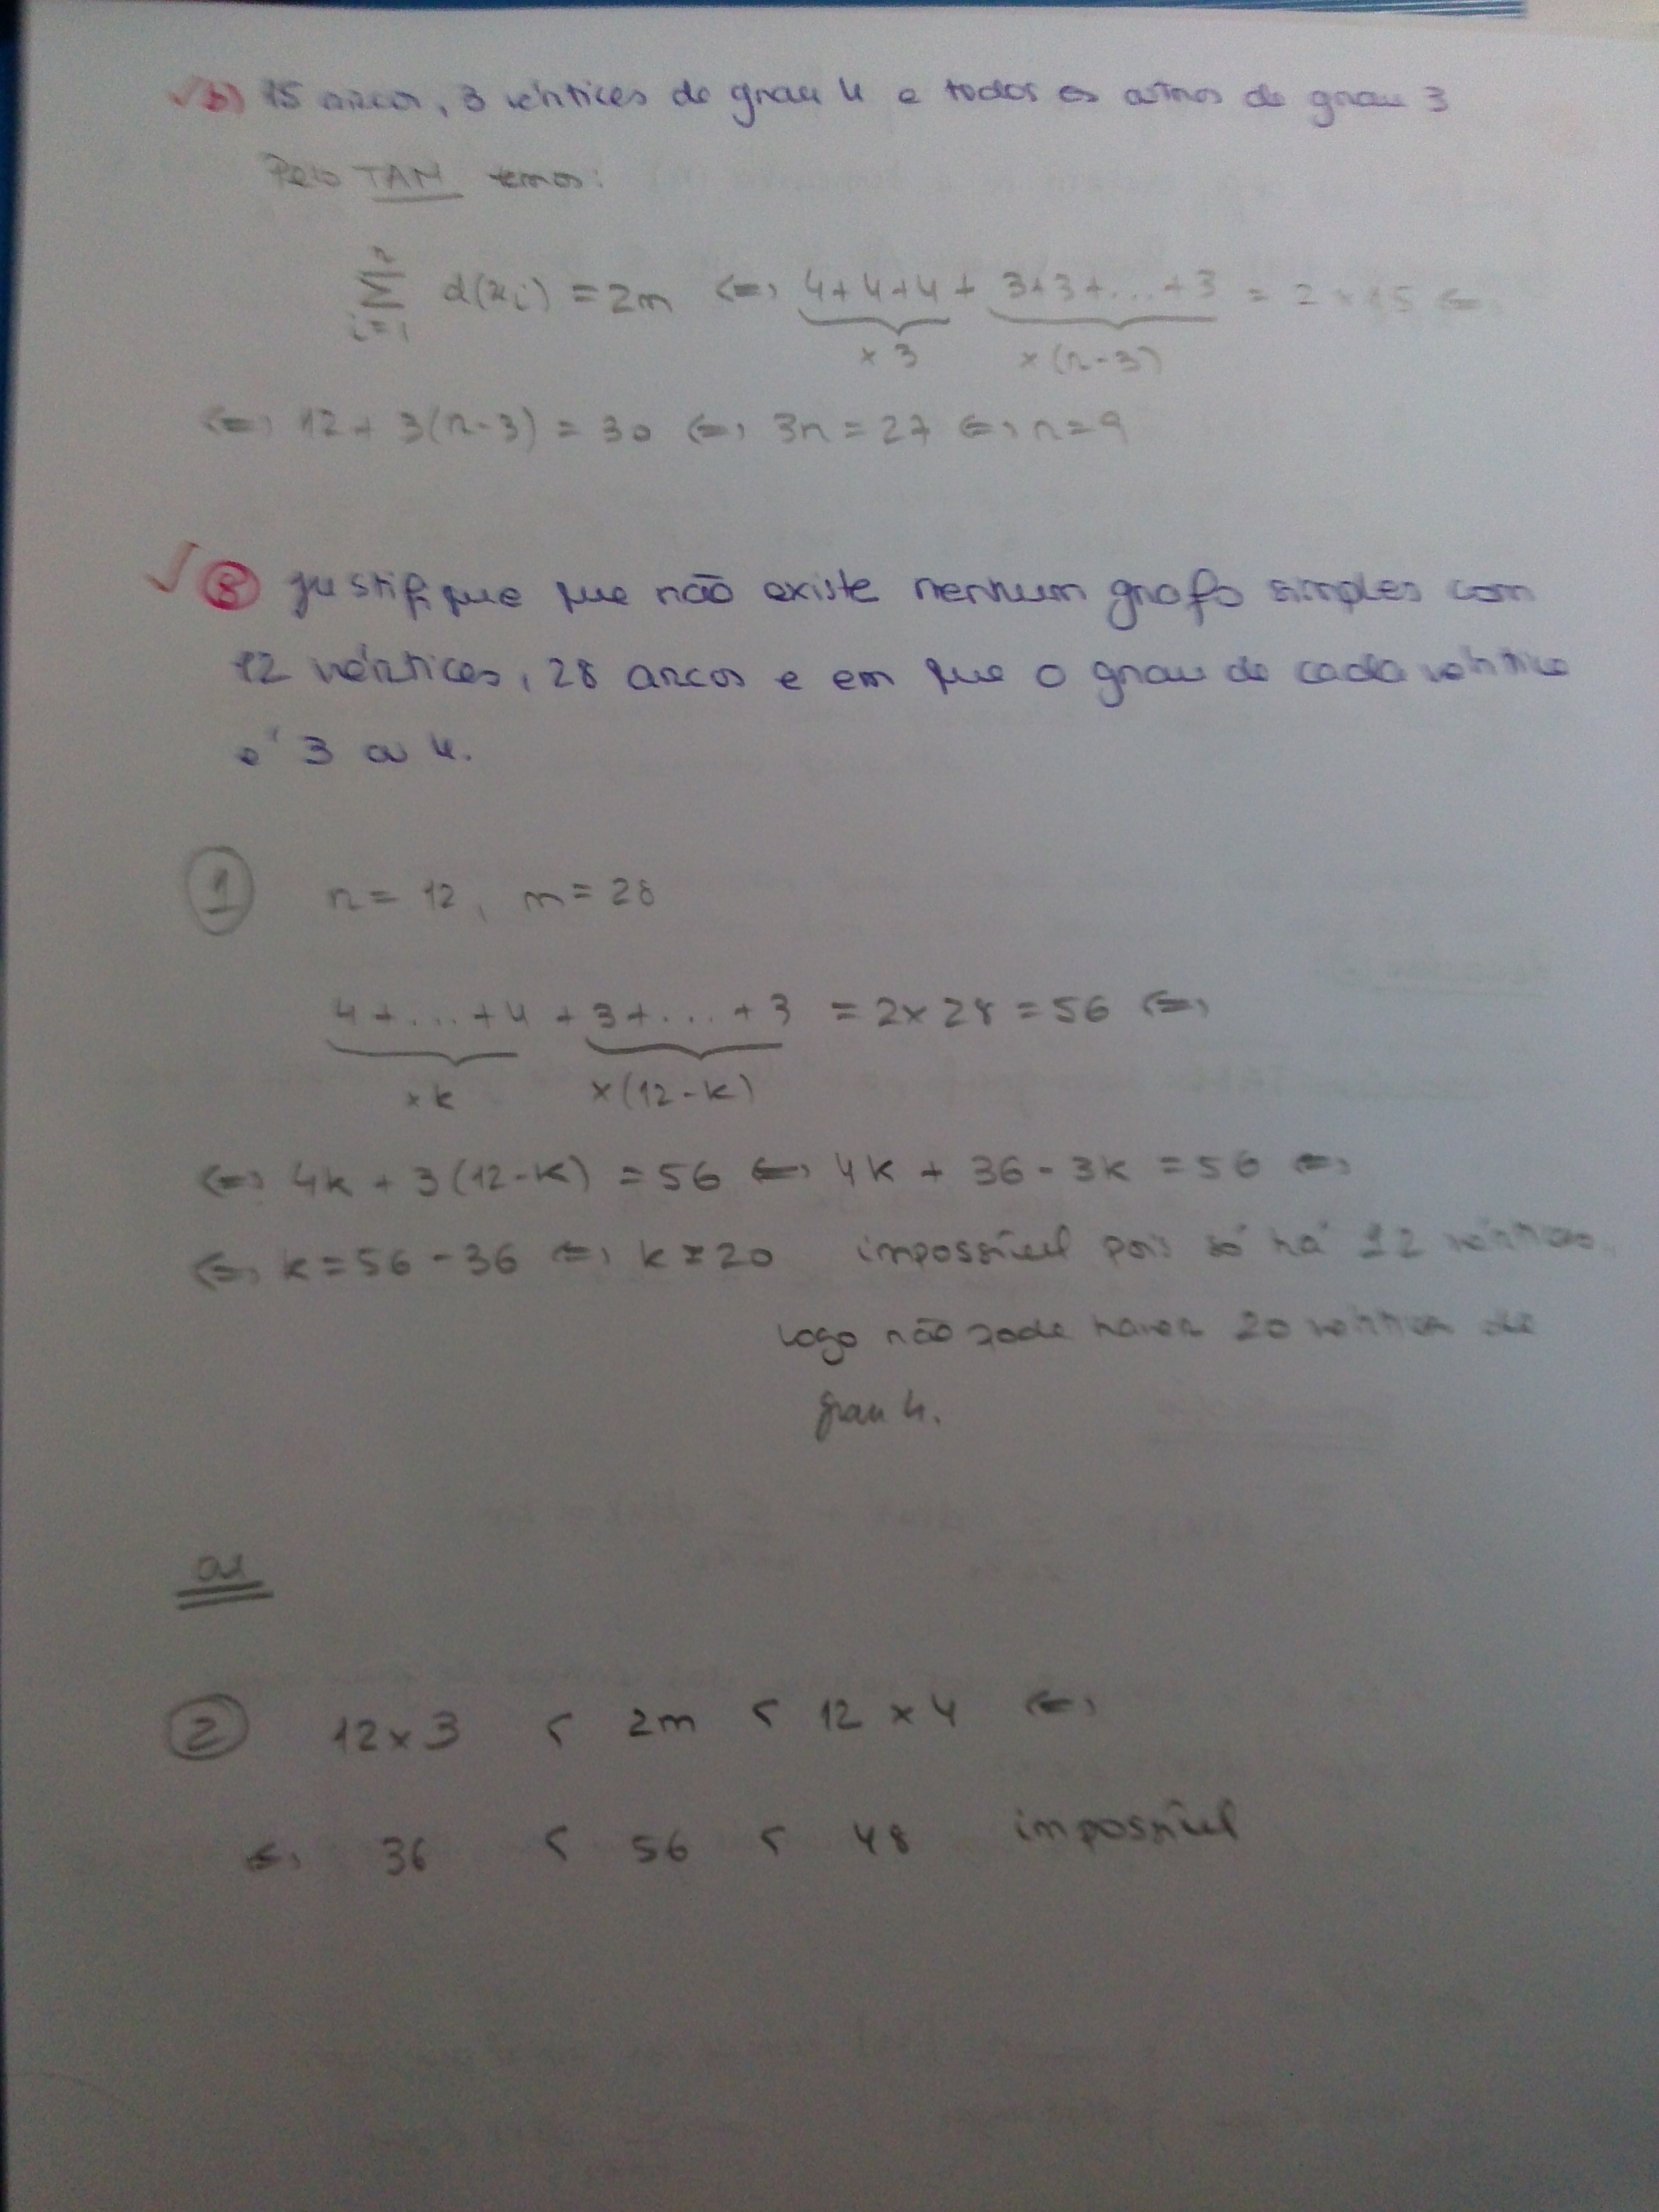 b) 15 arcos, 3 vértices de grau 4 e todos os outros de grau 3
Pelo TAM temos:
n
∑ d(xi) = 2m <=> 4+4+4 + 3+3+...+3 = 2×15 <=>
i=1
×3 ×(n-3)
<=> 12 + 3(n-3) = 30 <=> 3n = 27 <=> n=9
8 Justifique que não existe nenhum grafo simples com
12 vértices, 28 arcos e em que o grau de cada vértice
é 3 ou 4.
1 n = 12, m = 28
4+...+4 + 3+...+3 = 2×28 = 56 <=>
×k ×(12-k)
<=> 4k + 3(12-k) = 56 <=> 4k + 36 - 3k = 56 <=>
<=> k = 56 - 36 <=> k = 20 impossível pois só há 12 vértices,
logo não pode haver 20 vértices de
grau 4.
ou
2 12×3 < 2m < 12×4 <=>
<=> 36 < 56 < 48 impossível